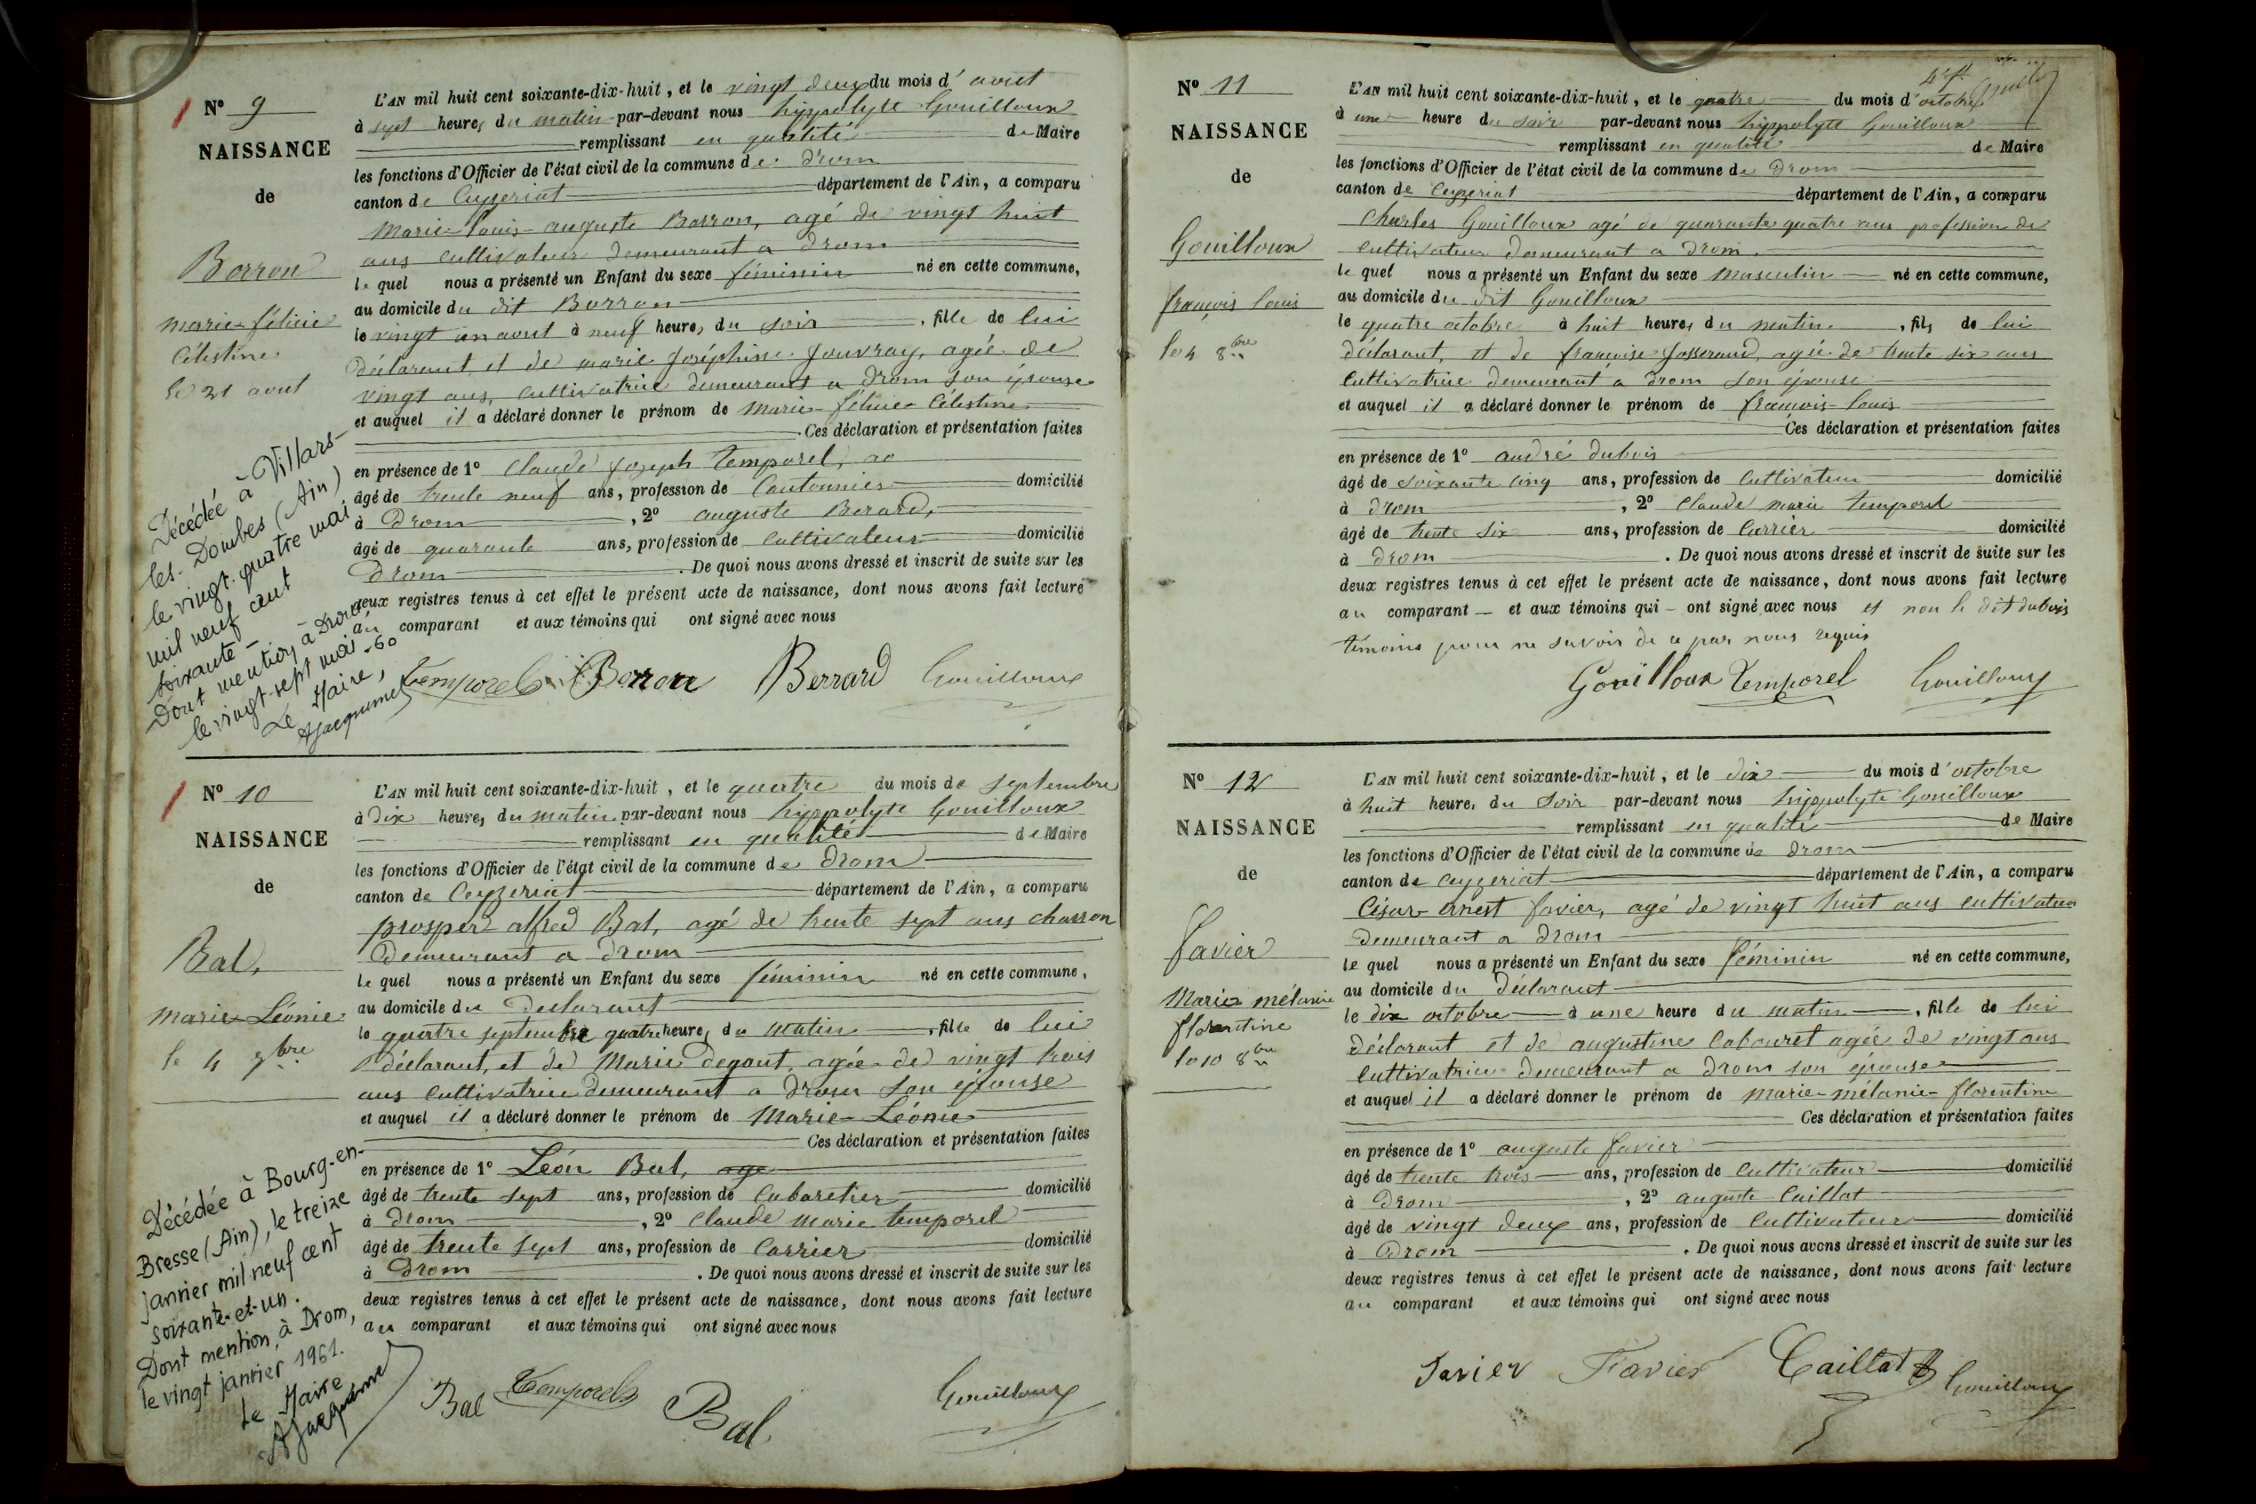 Nº 9
NAISSANCE
de
Borron
marie-félicie
Célestine
le 21 aout
L'AN mil huit cent soixante-dix-huit, et le vingt deux du mois d'aout
à sept heures du matin par-devant nous hippolyte Gouilloux
remplissant en qualité de Maire
les fonctions d'Officier de l'état civil de la commune de Drom
canton de Ceyzeriat département de l'Ain, a comparu
Marie-louis-auguste Borron, agé de vingt huit
ans cultivateur demeurant a Drom
le quel nous a présenté un Enfant du sexe féminin né en cette commune,
au domicile du dit Borron
le vingt un aout à neuf heures du soir, fille de lui
déclarant et de marie Joséphine Jouvray, agée de
vingt ans, cultivatrice demeurant a Drom son épouse
et auquel il a déclaré donner le prénom de Marie-félicie-Célestine
Ces déclaration et présentation faites
en présence de 1º Claude joseph Temporel,
âgé de trente neuf ans, profession de Cantonnier domicilié
à Drom, 2º auguste Berard,
âgé de quarante ans, profession de cultivateur domicilié
Drom. De quoi nous avons dressé et inscrit de suite sur les
deux registres tenus à cet effet le présent acte de naissance, dont nous avons fait lecture
au comparant et aux témoins qui ont signé avec nous
Temporel Borron Berrard Gouilloux
Décédée à Villars-
les-Dombes (Ain)
le vingt-quatre mai
mil neuf cent
soixante-
Dont mention à Drom
le vingt-sept mai-60
Le Maire,
AJacquemet
Nº 10
NAISSANCE
de
Bal,
Marie-Léonie
le 4 7bre
L'AN mil huit cent soixante-dix-huit, et le quatre du mois de septembre
à dix heures du matin par-devant nous hippolyte Gouilloux
remplissant en qualité de Maire
les fonctions d'Officier de l'état civil de la commune de Drom
canton de Ceyzeriat département de l'Ain, a comparu
prosper alfred Bal, agé de trente sept ans charron
demeurant a Drom
le quel nous a présenté un Enfant du sexe féminin né en cette commune,
au domicile du déclarant
le quatre septembre quatre heures du matin, fille de lui
déclarant, et de Marie degout, agée de vingt trois
ans cultivatrice demeurant a Drom son épouse
et auquel il a déclaré donner le prénom de Marie-Léonie
Ces déclaration et présentation faites
en présence de 1º Léon Bal, age
âgé de trente sept ans, profession de Cabaretier domicilié
à Drom, 2º Claude marie temporel
âgé de trente sept ans, profession de Carrier domicilié
à Drom. De quoi nous avons dressé et inscrit de suite sur les
deux registres tenus à cet effet le présent acte de naissance, dont nous avons fait lecture
au comparant et aux témoins qui ont signé avec nous
Bal Temporel Bal Gouilloux
Décédée à Bourg-en-
Bresse (Ain), le treize
janvier mil neuf cent
soixante-et-un.
Dont mention, à Drom,
le vingt janvier 1961.
Le Maire
AJacquemet
Nº 11
NAISSANCE
de
Gouilloux
françois louis
le 4 8bre
L'AN mil huit cent soixante-dix-huit, et le quatre du mois d'octobre
à une heure du soir par-devant nous hippolyte Gouilloux
remplissant en qualité de Maire
les fonctions d'Officier de l'état civil de la commune de Drom
canton de Ceyzeriat département de l'Ain, a comparu
Charles Gouilloux agé de quarante quatre ans profession de
cultivateur demeurant a Drom.
le quel nous a présenté un Enfant du sexe masculin né en cette commune,
au domicile du dit Gouilloux
le quatre octobre à huit heures du matin, fils de lui
déclarant, et de françoise Josserand, agée de trente six ans
cultivatrice demeurant a Drom son épouse
et auquel il a déclaré donner le prénom de françois-louis
Ces déclaration et présentation faites
en présence de 1º andré dubois
âgé de soixante cinq ans, profession de cultivateur domicilié
à Drom, 2º Claude marie temporel
âgé de trente six ans, profession de Carrier domicilié
à Drom. De quoi nous avons dressé et inscrit de suite sur les
deux registres tenus à cet effet le présent acte de naissance, dont nous avons fait lecture
au comparant — et aux témoins qui — ont signé avec nous et non le dit dubois
témoins pour ne savoir de ce par nous requis
Gouilloux Temporel Gouilloux
Nº 12
NAISSANCE
de
Favier
Marie mélanie
florentine
le 10 8bre
L'AN mil huit cent soixante-dix-huit, et le dix du mois d'octobre
à huit heures du soir par-devant nous hippolyte Gouilloux
remplissant en qualité de Maire
les fonctions d'Officier de l'état civil de la commune de Drom
canton de Ceyzeriat département de l'Ain, a comparu
César-ernest favier, agé de vingt huit ans cultivateur
demeurant a Drom
le quel nous a présenté un Enfant du sexe féminin né en cette commune,
au domicile du déclarant
le dix octobre à une heure du matin, fille de lui
déclarant et de augustine Cabouret agée de vingt ans
cultivatrice demeurant a Drom son épouse
et auquel il a déclaré donner le prénom de Marie-mélanie-florentine
Ces déclaration et présentation faites
en présence de 1º auguste favier
âgé de trente trois ans, profession de cultivateur domicilié
à Drom, 2º auguste Caillat
âgé de vingt deux ans, profession de cultivateur domicilié
à Drom. De quoi nous avons dressé et inscrit de suite sur les
deux registres tenus à cet effet le présent acte de naissance, dont nous avons fait lecture
au comparant et aux témoins qui ont signé avec nous
Favier Favier Caillat Gouilloux